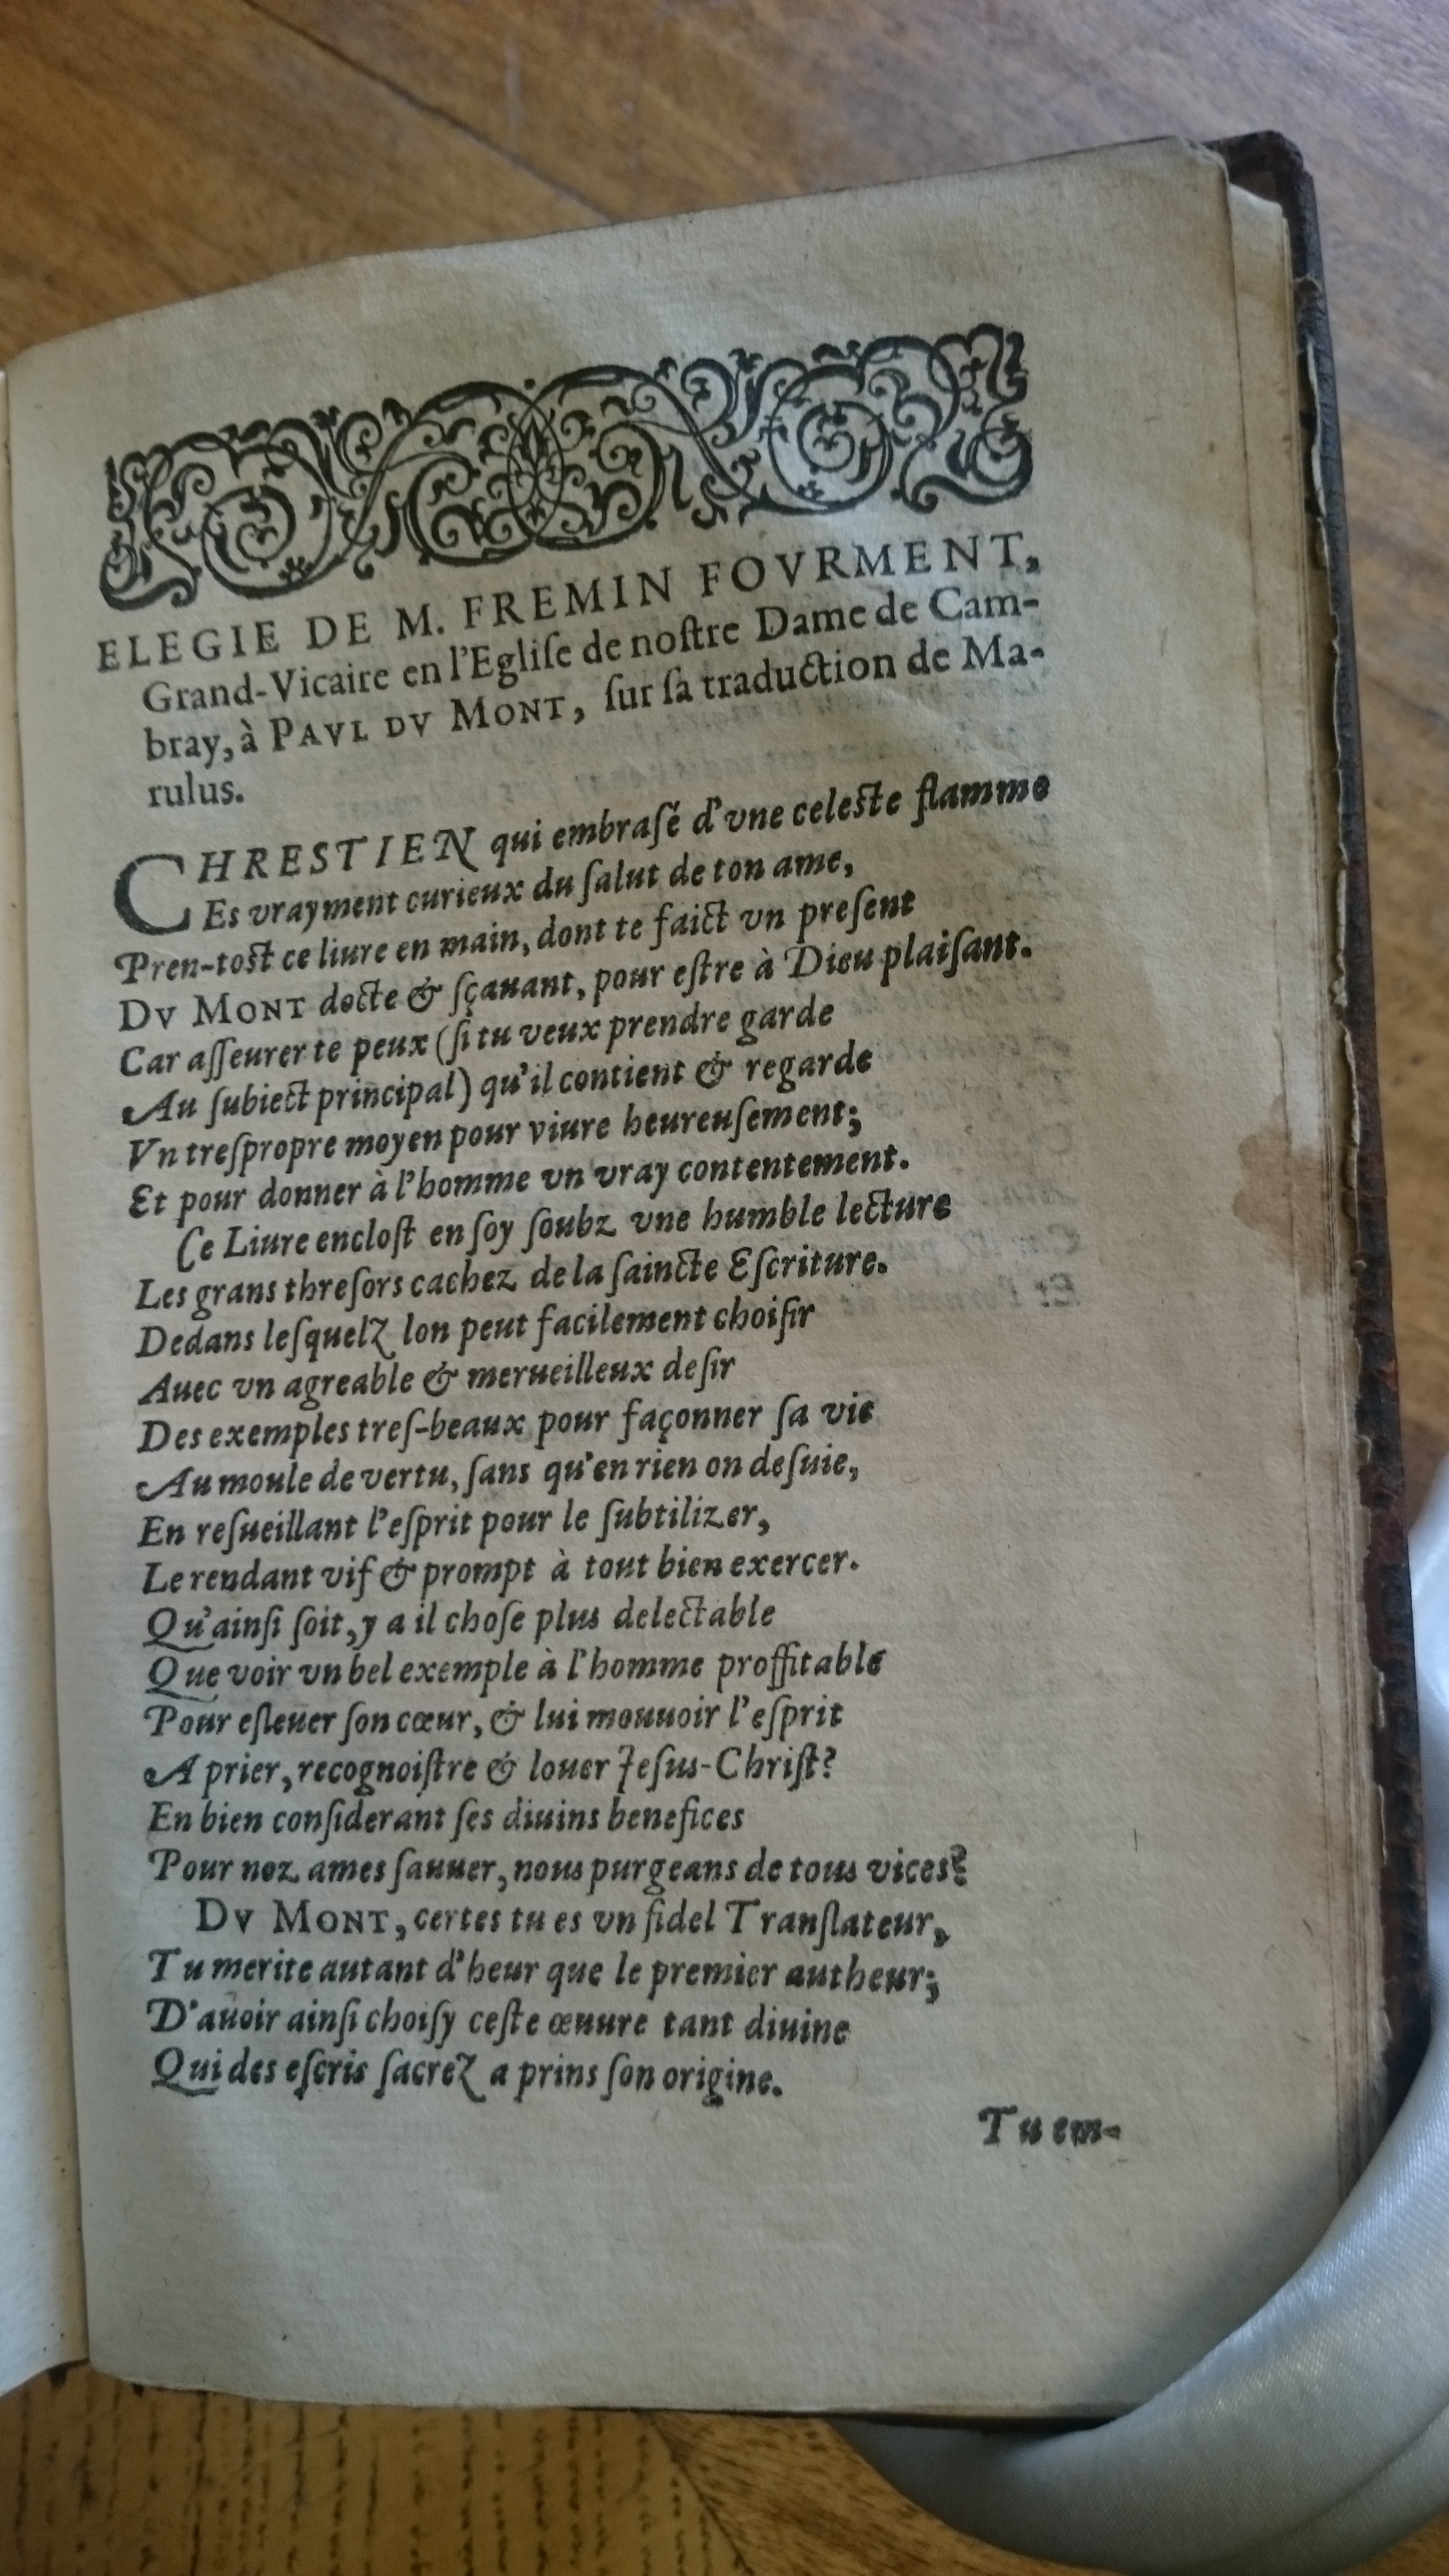 ELEGIE DE M. FREMIN FOVRMENT,
Grand-Vicaire en l'Egliſe de noſtre Dame de Cam-
bray, à PAVL DV MONT, ſur ſa traduction de Ma-
rulus.
CHRESTIEN qui embraſé d'vne celeſte flamme
Es vrayment curieux du ſalut de ton ame,
Pren-toſt ce liure en main, dont te faict vn preſent
DV MONT docte & ſçauant, pour eſtre à Dieu plaiſant.
Car aſſeurer te peux (ſi tu veux prendre garde
Au ſubiect principal) qu'il contient & regarde
Vn treſpropre moyen pour viure heureuſement;
Et pour donner à l'homme vn vray contentement.
Ce Liure encloſt en ſoy ſoubz vne humble lecture
Les grans threſors cachez de la ſaincte Eſcriture.
Dedans leſquelz lon peut facilement choiſir
Auec vn agreable & merueilleux deſir
Des exemples treſ-beaux pour façonner ſa vie
Au moule de vertu, ſans qu'en rien on deſuie,
En reſueillant l'eſprit pour le ſubtilizer,
Le rendant vif & prompt à tout bien exercer.
Qu'ainſi ſoit, y a il choſe plus delectable
Que voir vn bel exemple à l'homme proffitable
Pour eſleuer ſon cœur, & lui mouuoir l'eſprit
A prier, recognoiſtre & louer Jeſus-Chriſt?
En bien conſiderant ſes diuins benefices
Pour noz ames ſauuer, nous purgeans de tous vices?
DV MONT, certes tu es vn fidel Tranſlateur,
Tu merite autant d'heur que le premier autheur;
D'auoir ainſi choiſy ceſte œuure tant diuine
Qui des eſcris ſacrez a prins ſon origine.
Tu em-